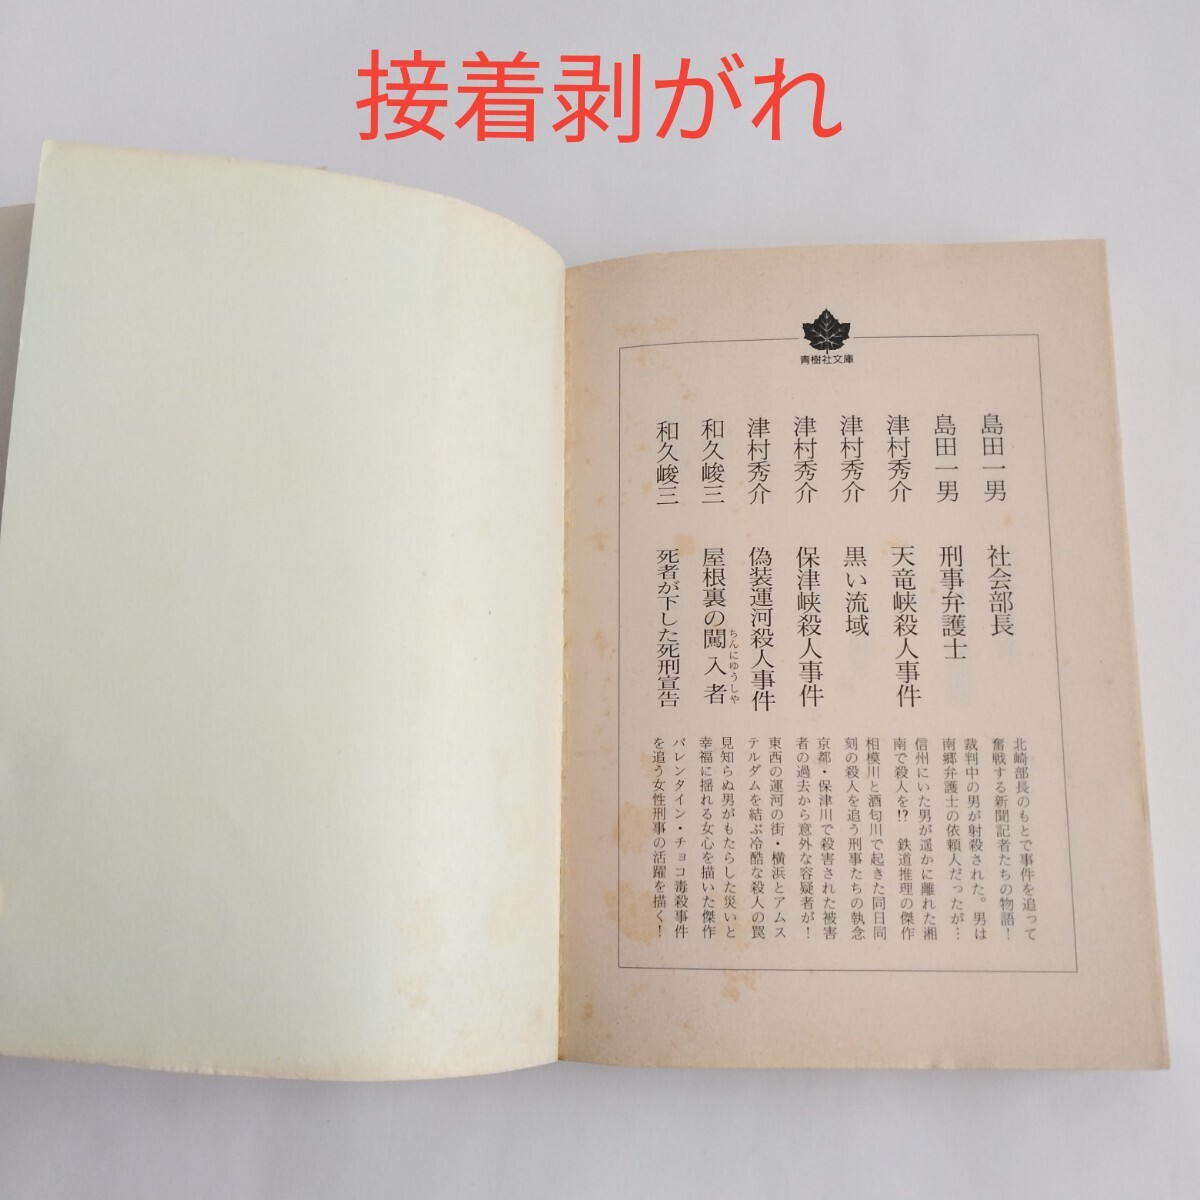 接着剥がれ
青樹社文庫
島田一男
社会部長
北崎部長のもとで事件を追って
奮戦する新聞記者たちの物語！
島田一男
刑事弁護士
裁判中の男が射殺された。男は
南郷弁護士の依頼人だったが…
津村秀介
天竜峡殺人事件
信州にいた男が遥かに離れた湘
南で殺人を!?　鉄道推理の傑作
津村秀介
黒い流域
相模川と酒匂川で起きた同日同
刻の殺人を追う刑事たちの執念
津村秀介
保津峡殺人事件
京都・保津川で殺害された被害
者の過去から意外な容疑者が！
津村秀介
偽装運河殺人事件
東西の運河の街・横浜とアムス
テルダムを結ぶ冷酷な殺人の罠
和久峻三
屋根裏の闖入者
ちんにゆうしや
見知らぬ男がもたらした災いと
幸福に揺れる女心を描いた傑作
和久峻三
死者が下した死刑宣告
バレンタイン・チョコ毒殺事件
を追う女性刑事の活躍を描く！